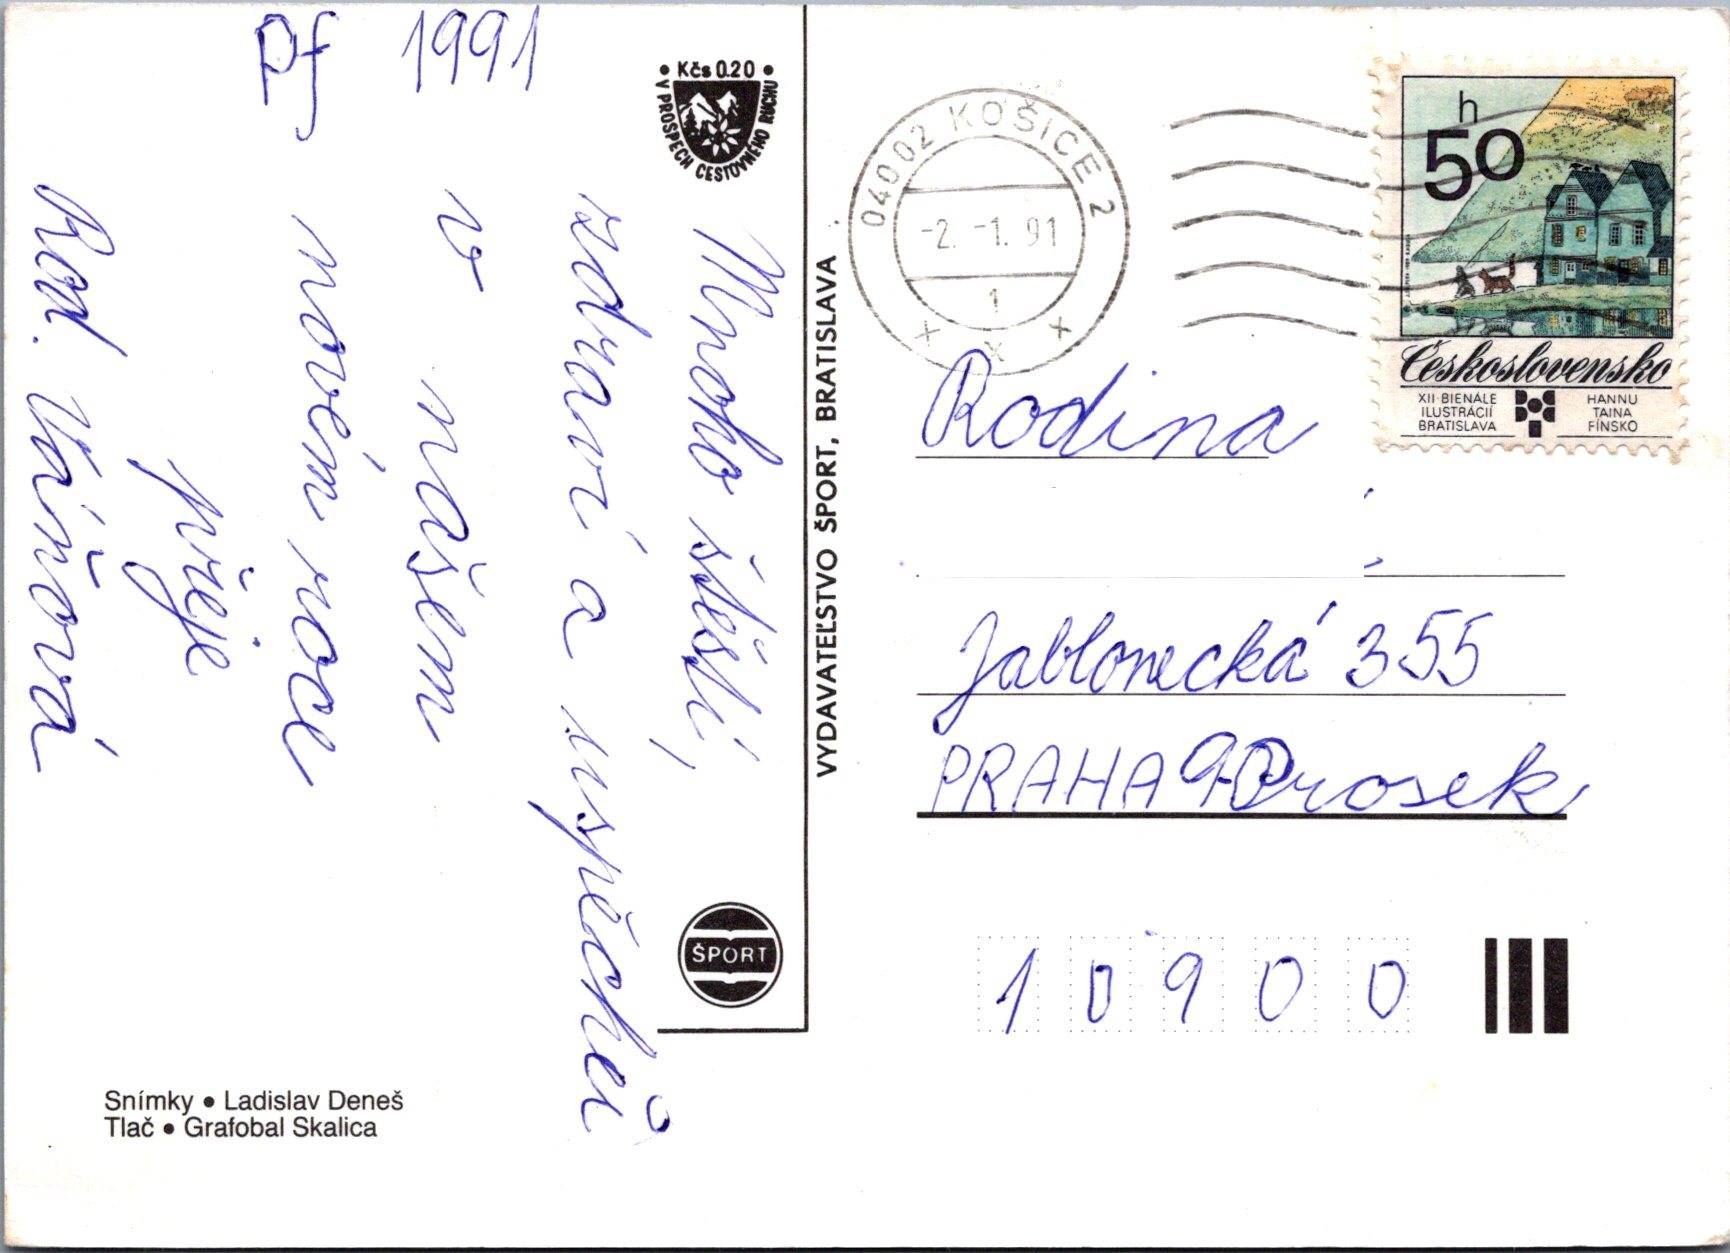 pf 1991
Mnoho štěstí,
zdraví a úspěchů
v našem
novém roce
přeje
Rod. Váňová
• Kčs 0.20 •
V PROSPECH CESTOVNÉHO RUCHU
VYDAVATEĽSTVO ŠPORT, BRATISLAVA
ŠPORT
Snímky • Ladislav Deneš
Tlač • Grafobal Skalica
04002 KOŠICE 2
-2. -1. 91
1
x x x
h
50
Československo
XII·BIENÁLE
ILUSTRÁCIÍ
BRATISLAVA
HANNU
TAINA
FÍNSKO
Rodina
Jablonecká 355
PRAHA 9 Prosek
10900